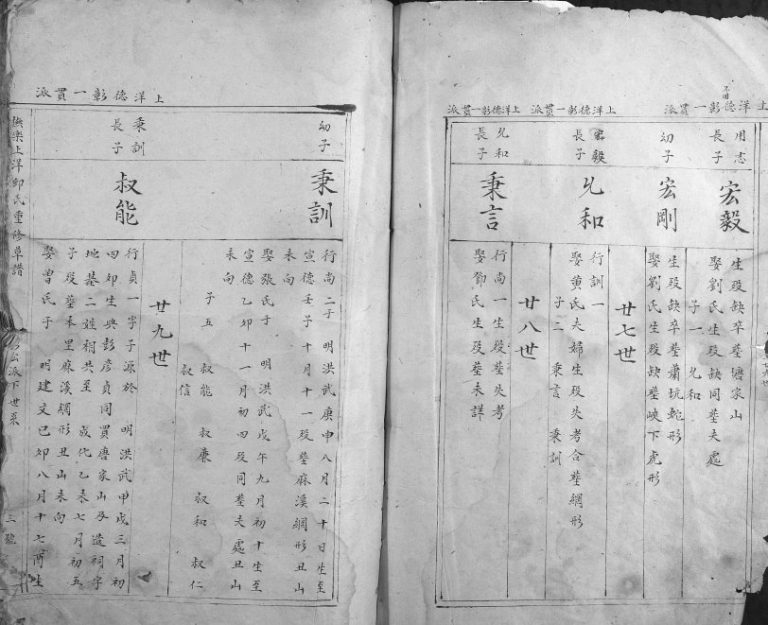 上洋德彰一貫派
用志
長子
宏毅
生殁缺卒塟塘家山
娶劉氏生殁缺同塟夫處
子一 允和
幼子
宏剛
生殁缺卒塟蕭坑蛇形
娶劉氏生殁缺塟峽下虎形
廿七世
上洋德彰一貫派
宏毅
長子
允和
行訓一
娶黄氏夫婦生殁失考合塟網形
子二 秉言 秉訓
廿八世
上洋德彰一貫派
允和
長子
秉言
行尚一生殁塟失考
娶鄧氏生殁塟未詳
上洋德彰一貫派
幼子
秉訓
行尚二于 明洪武庚申八月二十日生至
宣德壬子十月十一殁塟麻溪網形丑山
未向
娶張氏于 明洪武戊午九月初十生至
宣德乙卯十一月初四殁同塟夫處丑山
未向
子五 叔能 叔康 叔和 叔仁
叔信
廿九世
秉訓
長子
叔能
行貞一字子源於 明洪武甲戌三月初
四卯生與彭彦貞同買唐家山及造祠宇
地基二姓相共至 成化乙未七月初五
子殁塟未里麻溪網形丑山未向
娶曾氏于 明建文己卯八月十七酉生
上洋邱氏重修草譜
派下世系
三